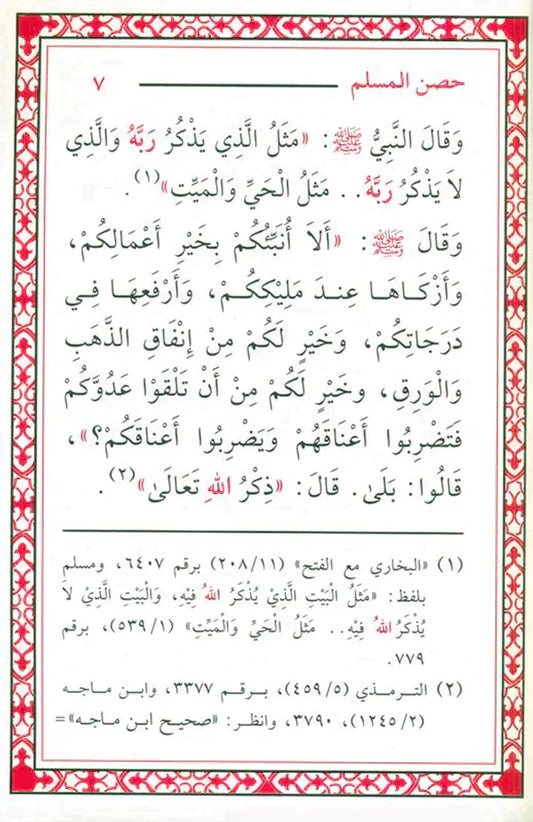 حصن المسلم ٧
وَقَالَ النَّبِيُّ ﷺ: «مَثَلُ الَّذِي يَذْكُرُ رَبَّهُ وَالَّذِي
لاَ يَذْكُرُ رَبَّهُ.. مَثَلُ الْحَيِّ وَالْمَيِّتِ»(١).
وَقَالَ ﷺ: «أَلاَ أُنَبِّئُكُمْ بِخَيْرِ أَعْمَالِكُمْ،
وَأَزْكَاهَا عِندَ مَلِيكِكُمْ، وَأَرْفَعِهَا فِي
دَرَجَاتِكُمْ، وَخَيْرٍ لَكُمْ مِنْ إِنْفَاقِ الذَّهَبِ
وَالْوَرِقِ، وخَيْرٍ لَكُمْ مِنْ أَنْ تَلْقَوْا عَدُوَّكُمْ
فَتَضْرِبُوا أَعْنَاقَهُمْ وَيَضْرِبُوا أَعْنَاقَكُمْ؟»،
قَالُوا: بَلَىٰ. قَالَ: «ذِكْرُ اللهِ تَعَالَىٰ»(٢).
(١) «البخاري مع الفتح» (٢٠٨/١١) برقم ٦٤٠٧، ومسلم
بلفظ: «مَثَلُ الْبَيْتِ الَّذِيْ يُذْكَرُ اللهُ فِيْهِ، وَالْبَيْتِ الَّذِيْ لاَ
يُذْكَرُ اللهُ فِيْهِ.. مَثَلُ الْحَيِّ وَالْمَيِّتِ» (٥٣٩/١)، برقم
٧٧٩.
(٢) الترمذي (٤٥٩/٥)، برقم ٣٣٧٧، وابن ماجه
(١٢٤٥/٢)، ٣٧٩٠، وانظر: «صحيح ابن ماجه»=